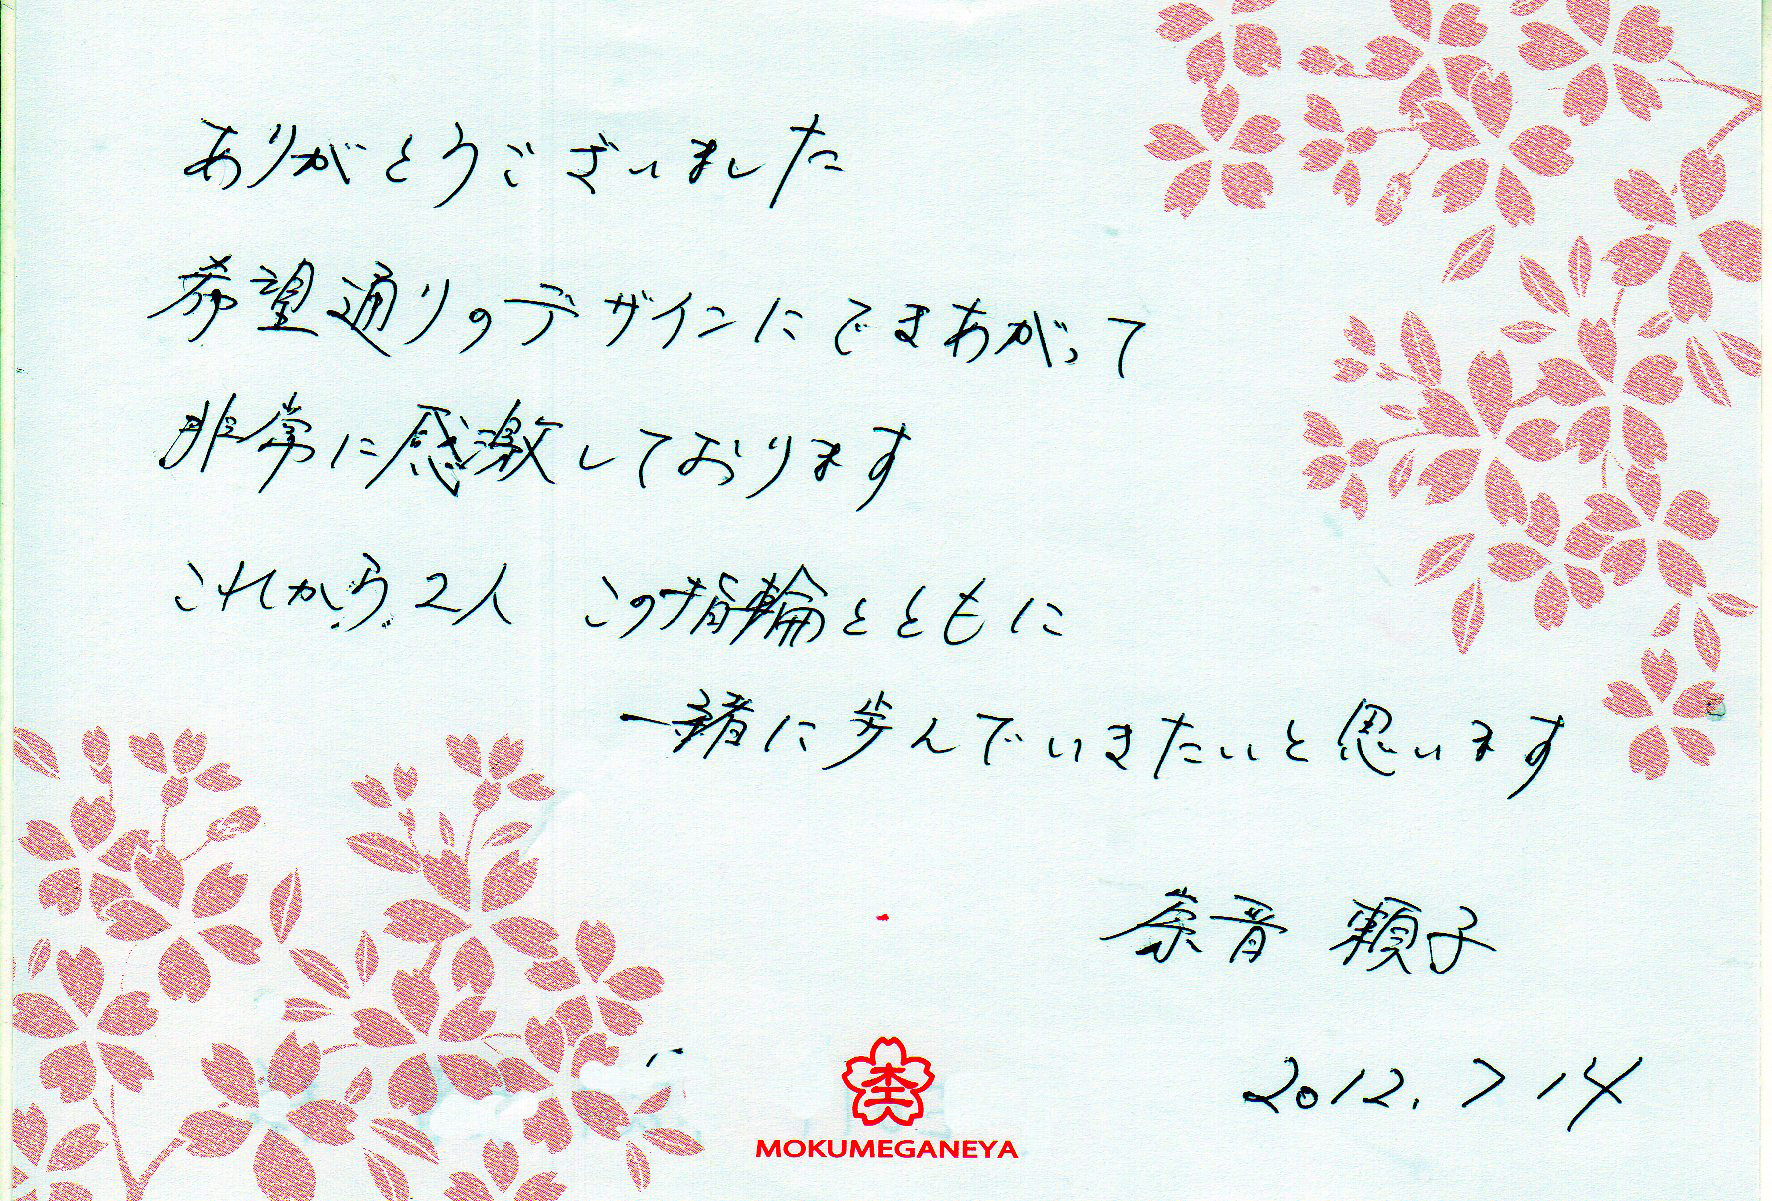 ありがとうございました
希望通りのデザインにできあがって
非常に感激しております
これから2人 この指輪とともに
一緒に歩んでいきたいと思います
奈音 頼子
2012.7 14
杢
MOKUMEGANEYA